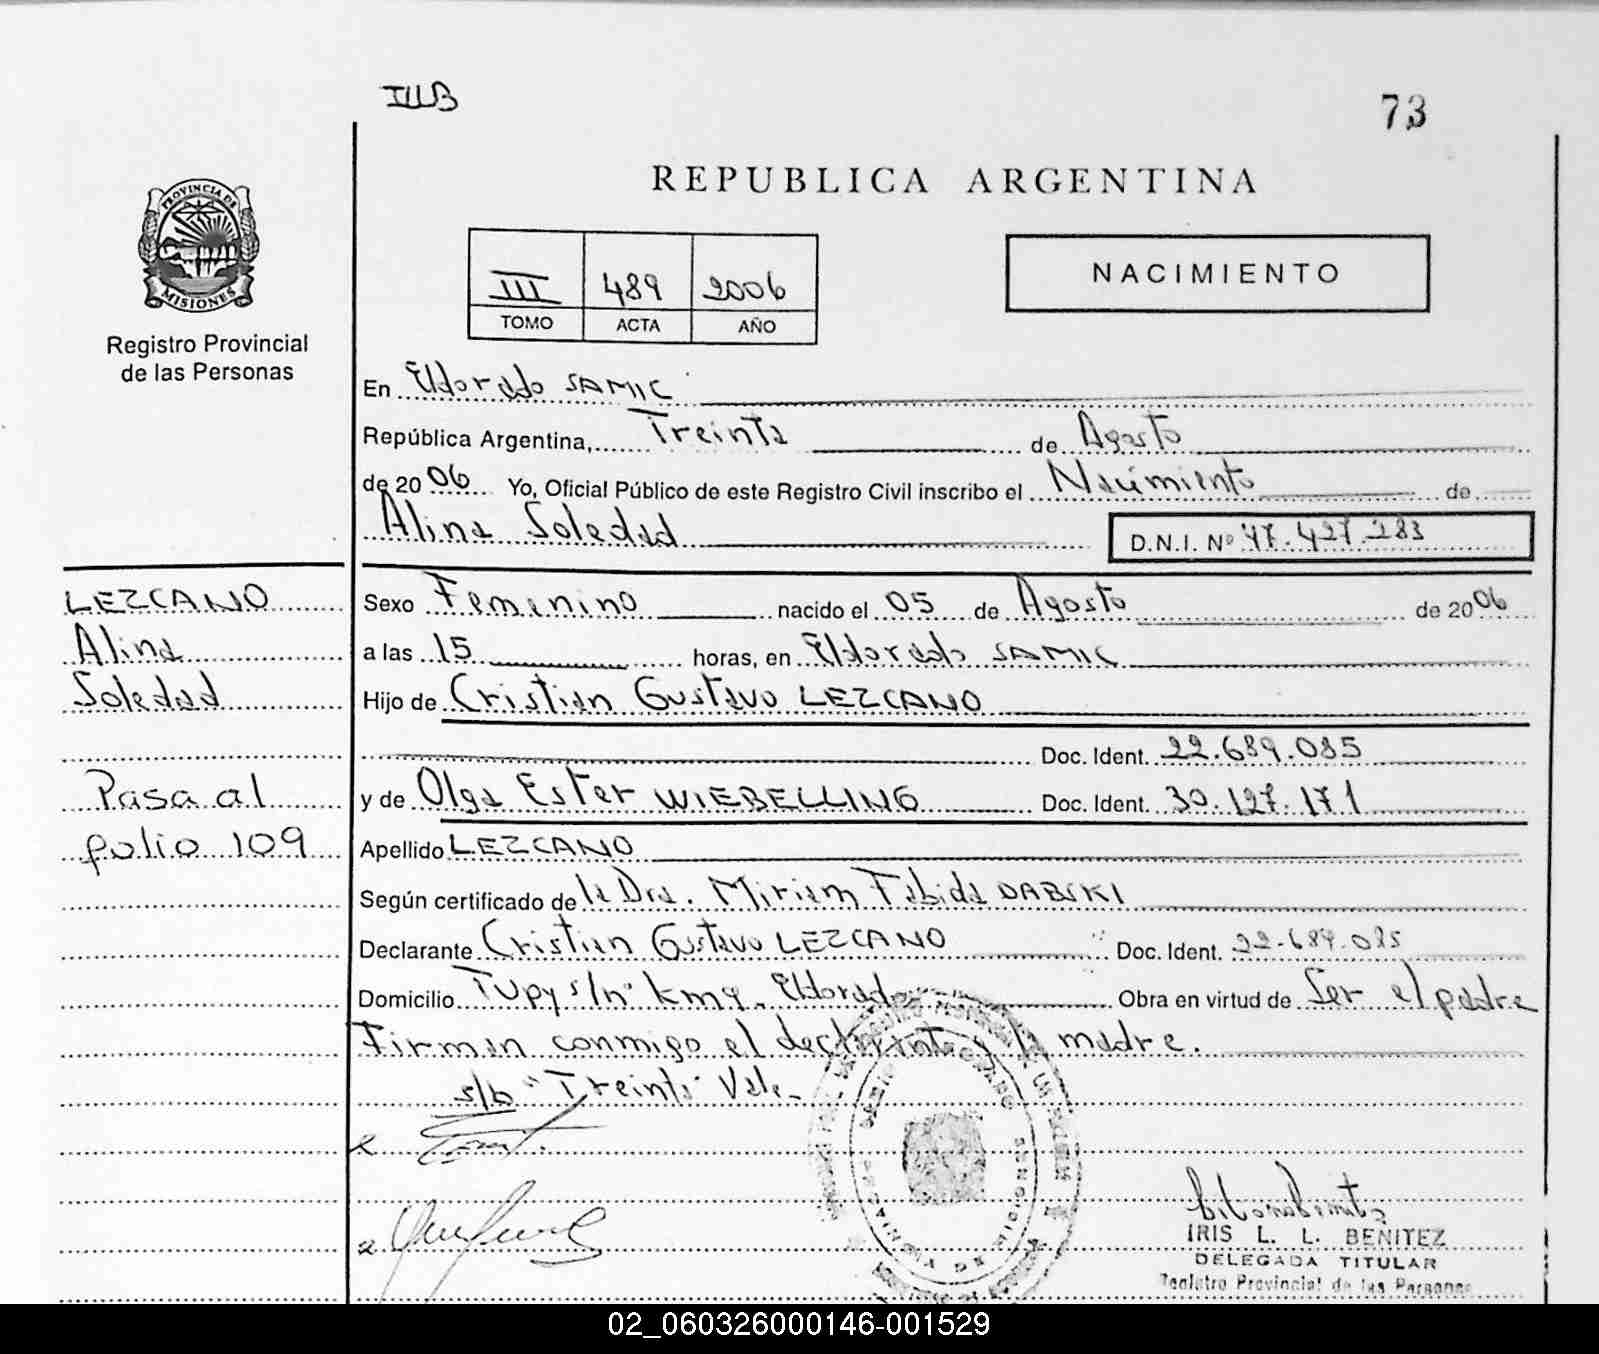 IIIB
73
REPUBLICA ARGENTINA
PROVINCIA DE
MISIONES
Registro Provincial
de las Personas
III 489 2006
TOMO ACTA AÑO
NACIMIENTO
En Eldorado SAMIC
República Argentina, Treinta de Agosto
de 2006 Yo, Oficial Público de este Registro Civil inscribo el Nacimiento de
Alina Soledad
D.N.I. Nº 47.427.283
LEZCANO
Alina
Soledad
Pasa al
folio 109
Sexo Femenino nacido el 05 de Agosto de 2006
a las 15 horas, en Eldorado SAMIC
Hijo de Cristian Gustavo LEZCANO
Doc. Ident. 22.689.085
y de Olga Ester WIEBELLING Doc. Ident. 30.127.171
Apellido LEZCANO
Según certificado de la Dra. Miriam Fabida DABSKI
Declarante Cristian Gustavo LEZCANO Doc. Ident. 22.689.085
Domicilio Tupy s/nº km 9. Eldorado Obra en virtud de Ser el padre
Firman conmigo el declarante y la madre.
s/b "Treinta" Vale.
IRIS L. L. BENITEZ
DELEGADA TITULAR
Registro Provincial de las Personas
02_060326000146-001529